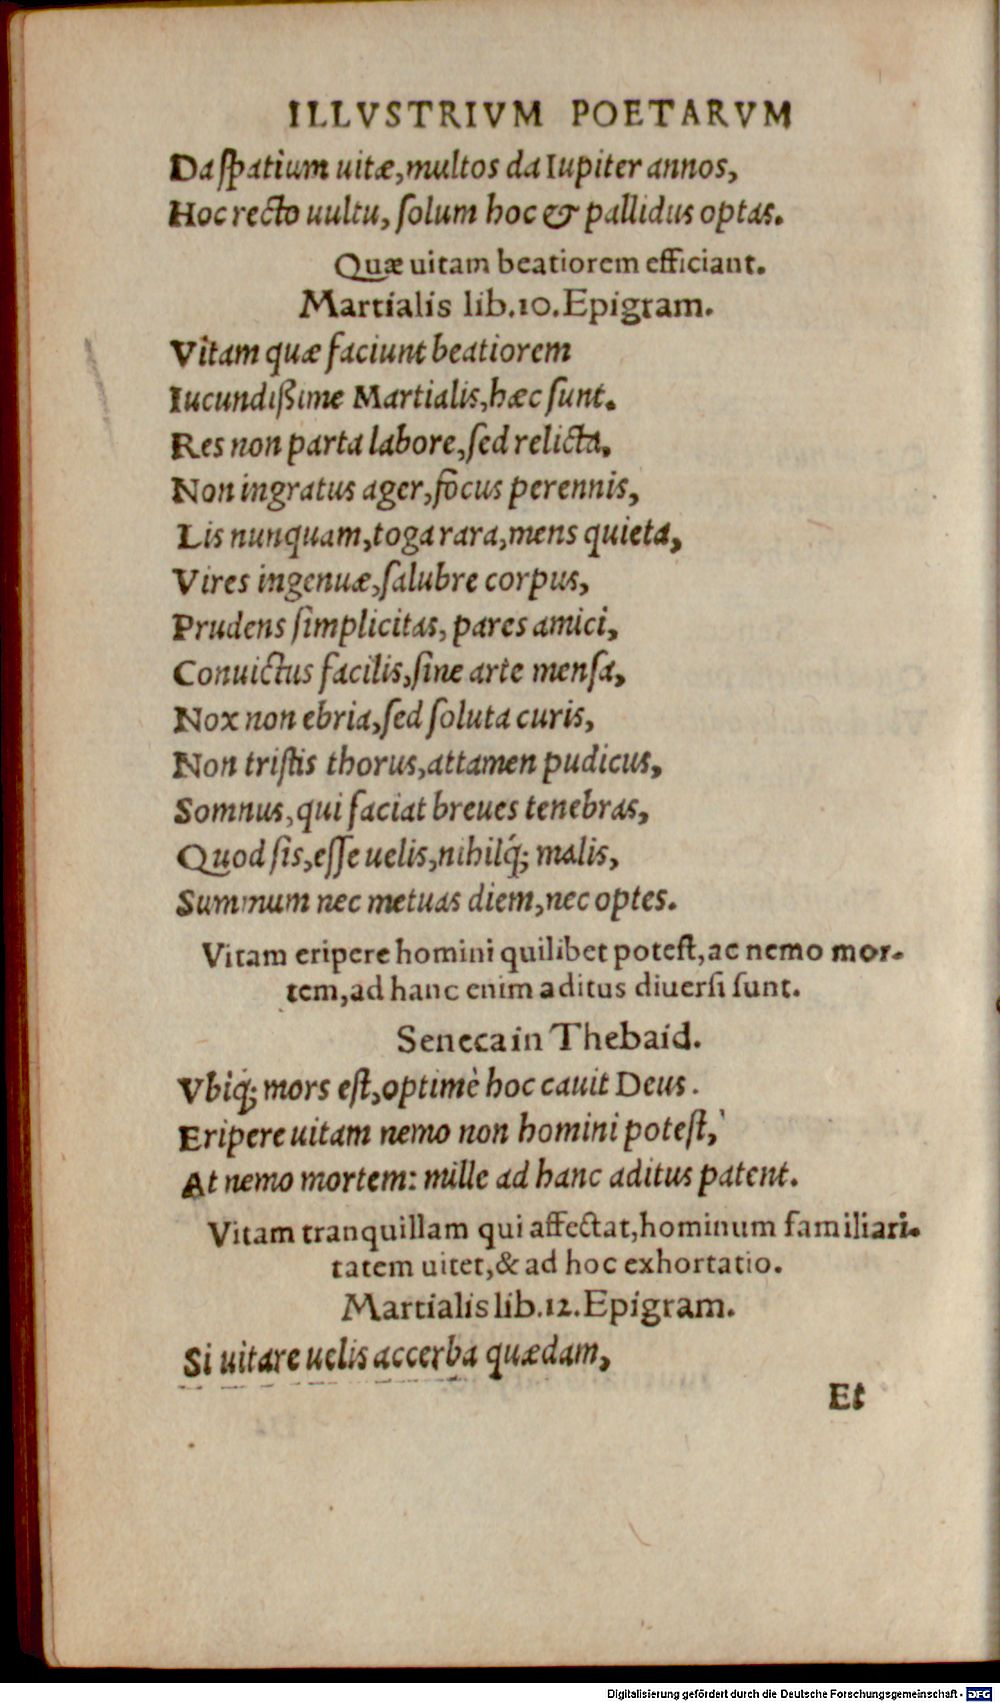 ILLVSTRIVM POETARVM
Da ſpatium uitæ, multos da Iupiter annos,
Hoc recto uultu, ſolum hoc & pallidus optas.
Quæ uitam beatiorem efficiant.
Martialis lib.10.Epigram.
Vitam quæ faciunt beatiorem
Iucundißime Martialis, hæc ſunt.
Res non parta labore, ſed relicta,
Non ingratus ager, focus perennis,
Lis nunquam, toga rara, mens quieta,
Vires ingenuæ, ſalubre corpus,
Prudens ſimplicitas, pares amici,
Conuictus facilis, ſine arte menſa,
Nox non ebria, ſed ſoluta curis,
Non triſtis thorus, attamen pudicus,
Somnus, qui faciat breues tenebras,
Quod ſis, eſſe uelis, nihilq́; malis,
Summum nec metuas diem, nec optes.
Vitam eripere homini quilibet poteſt, ac nemo mor-
tem, ad hanc enim aditus diuerſi ſunt.
Seneca in Thebaid.
Vbiq; mors eſt, optimè hoc cauit Deus.
Eripere uitam nemo non homini poteſt,
At nemo mortem: mille ad hanc aditus patent.
Vitam tranquillam qui affectat, hominum familiari-
tatem uitet, & ad hoc exhortatio.
Martialis lib.12.Epigram.
Si uitare uelis accerba quædam,
Et
Digitalisierung gefördert durch die Deutsche Forschungsgemeinschaft - DFG